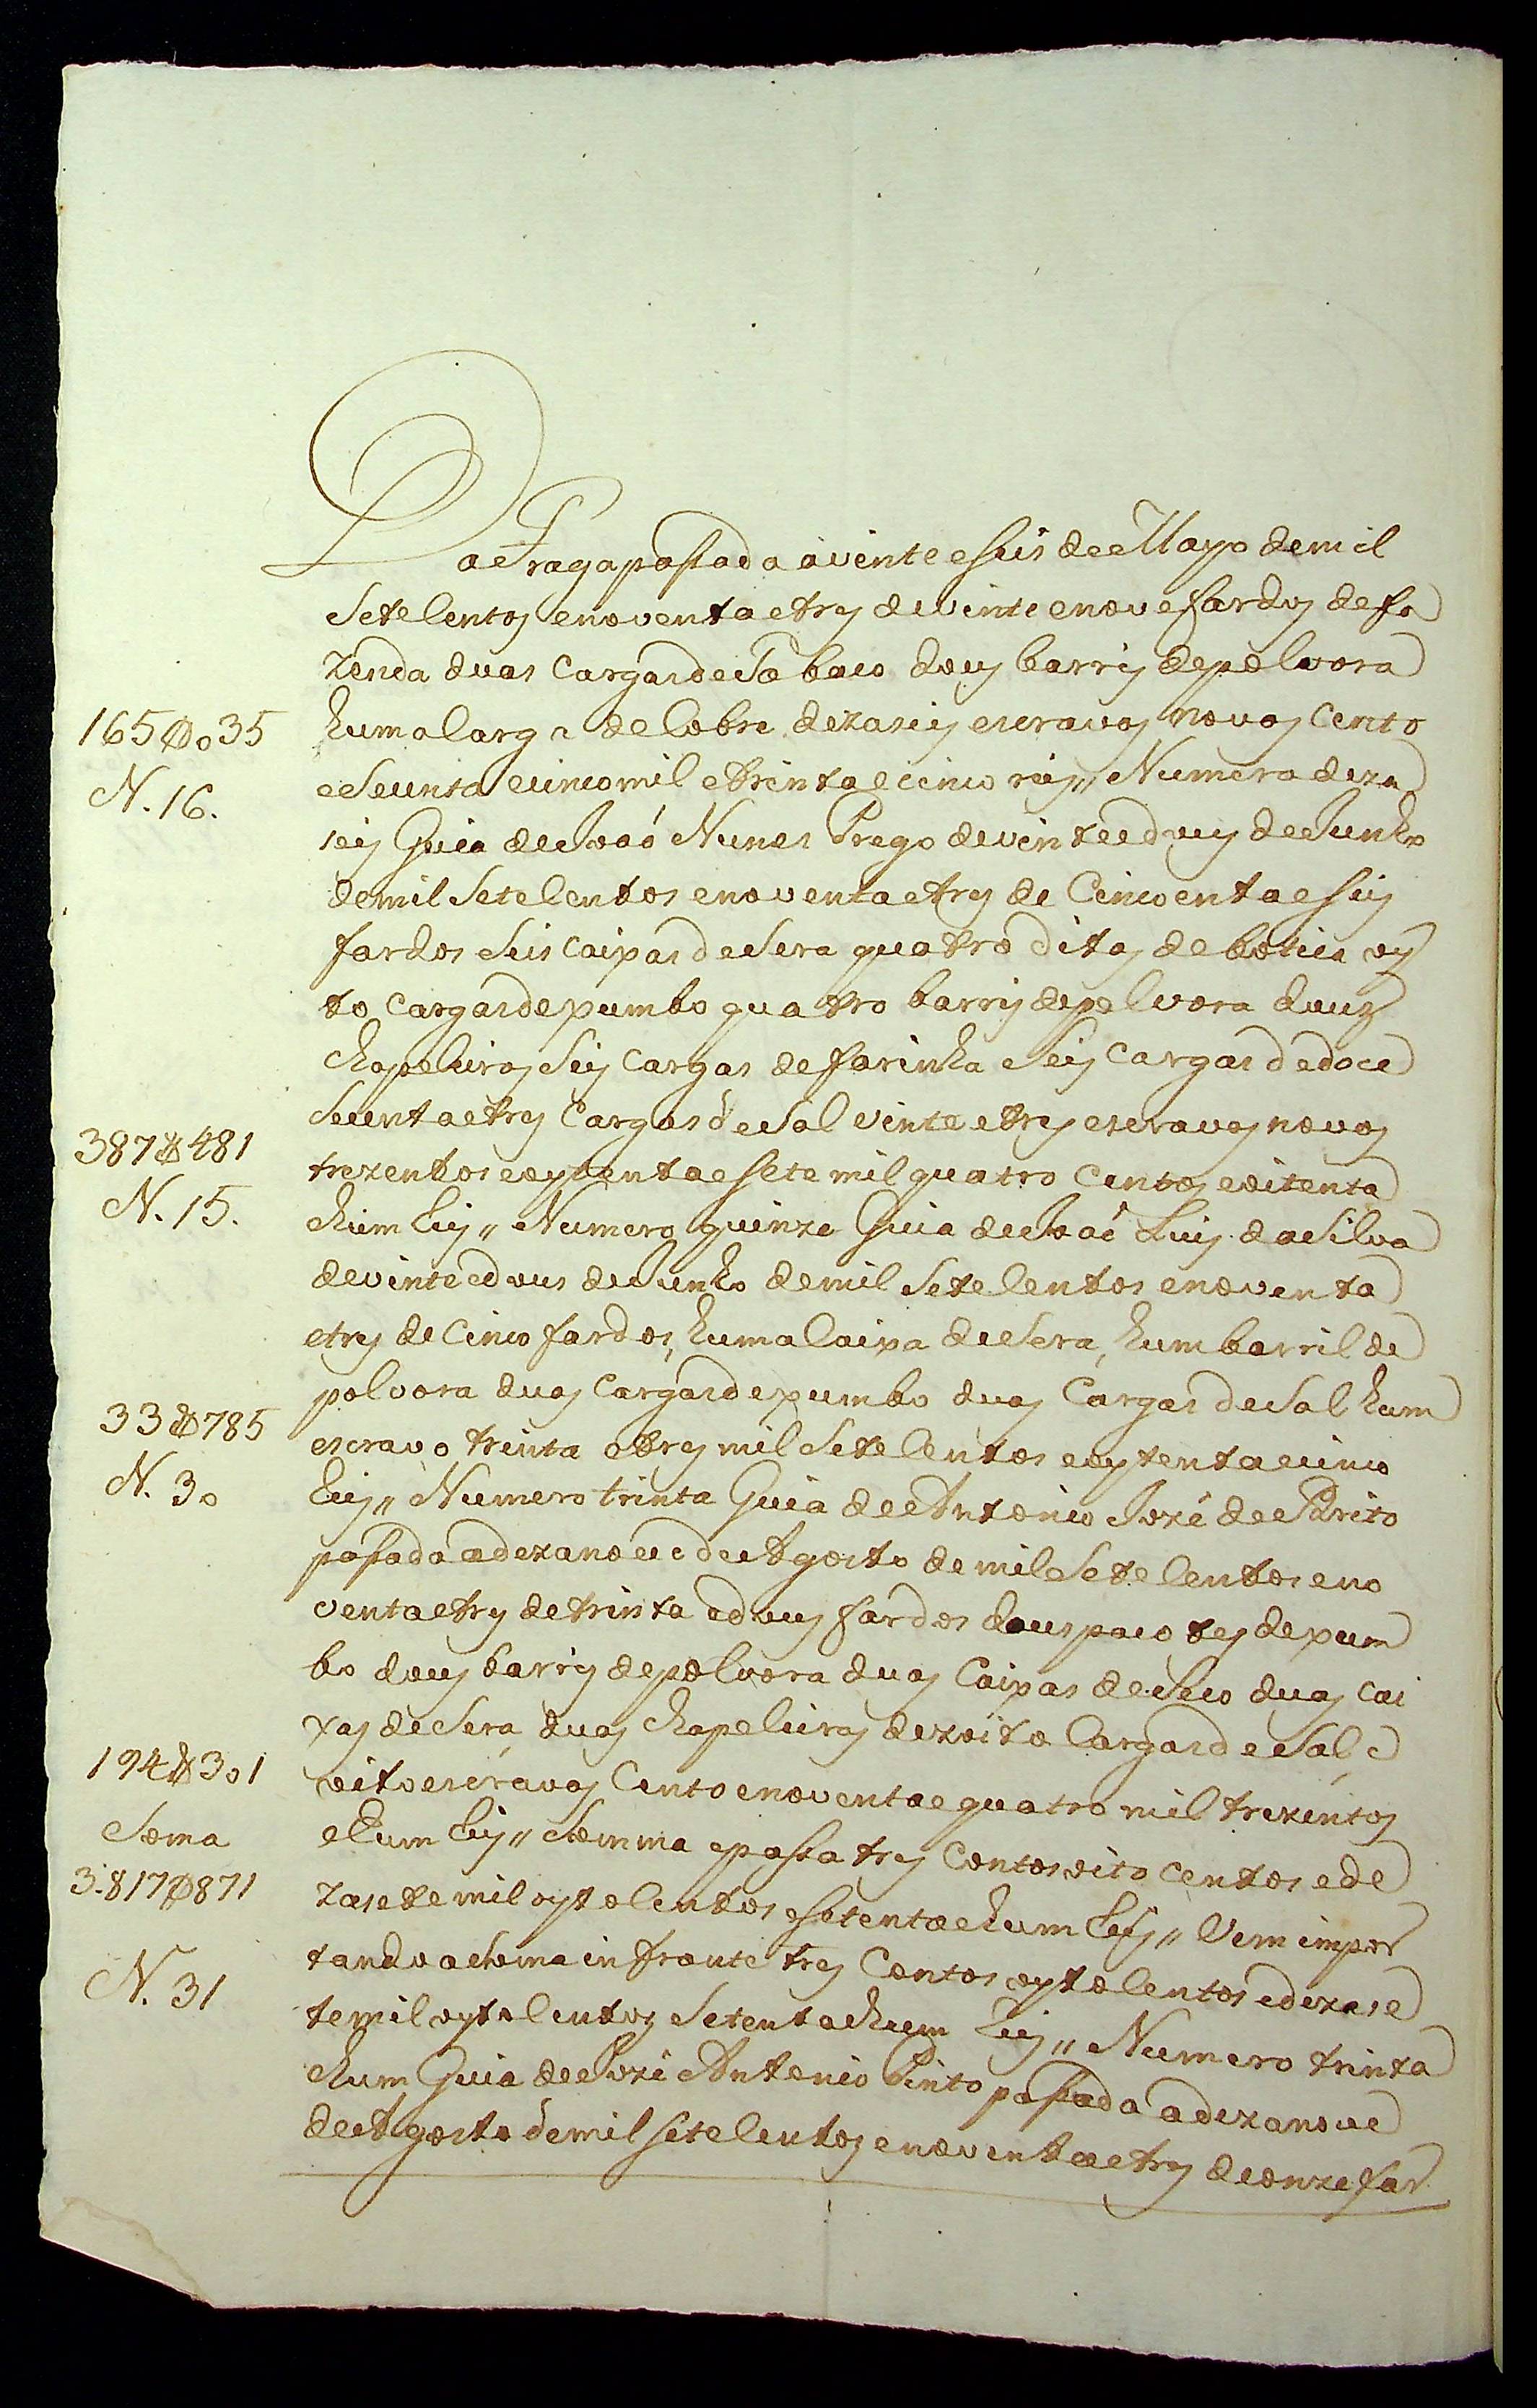 da Fraga passada a vinte e seis de Mayo de mil
Setecentos e noventa e trez de vinte e nove fardos de fa
zenda duas cargas de Tabaco dous barris de polvora
165$035
huma carga de Cobre dezaseis escravos novos cento
N. 16.
e Secenta e cinco mil e trinta e cinco reis,, Numero deza
seis Guia de Joaó Nunes Prego de vinte e dous de Junho
de mil Setecentos e noventa e trez de Cincoenta e seis
fardos Seis caixas de Sera quatro ditas de botica oy
to cargas de xumbo quatro barris de polvora duas
chapeleiras Seis cargas de farinha Seis cargas de doce
Secenta e trez cargas de Sal vinte e trez escravos novos
387$481
trezentos e oytenta e Sete mil quatro centos e oitenta
N. 15.
e hum Reis,, Numero quinze Guia de Joaó Luis da Silva
de vinte e dous de Junho de mil Setecentos e noventa
e trez de Cinco fardos, huma Caixa de Sera, hum barril de
polvora duas cargas de xumbo duas Cargas de Sal hum
33$785
escravo trinta e trez mil Setecentos e oytenta e cinco
N. 30
Reis,, Numero trinta Guia de Antonio Jozé de Brito
passada a dezanove de Agosto de mil e Setecentos e no
venta e trez de trinta e dous fardos dous pacotes de xum
bo dous barris de polvora duas Caixas de Seco duas cai
xas de Sera duas chapeleiras dezoito Cargas de Sal e
194$301
oito escravos Cento e noventa e quatro mil trezentos
Soma
e hum Reis,, Somma e passa trez Contos oito centos e de
3.817$871
zasete mil oytocentos e setenta e hum Reis,, Vem impor
tando a Soma in fronte trez Contos oytocentos e dezase
N. 31
te mil oytocentos Setenta e hum Reis,, Numero trinta
e hum Guia de Jozé Antonio Pinto passada a dezanove
de Agosto de mil Setecentos e noventa e trez de onze far